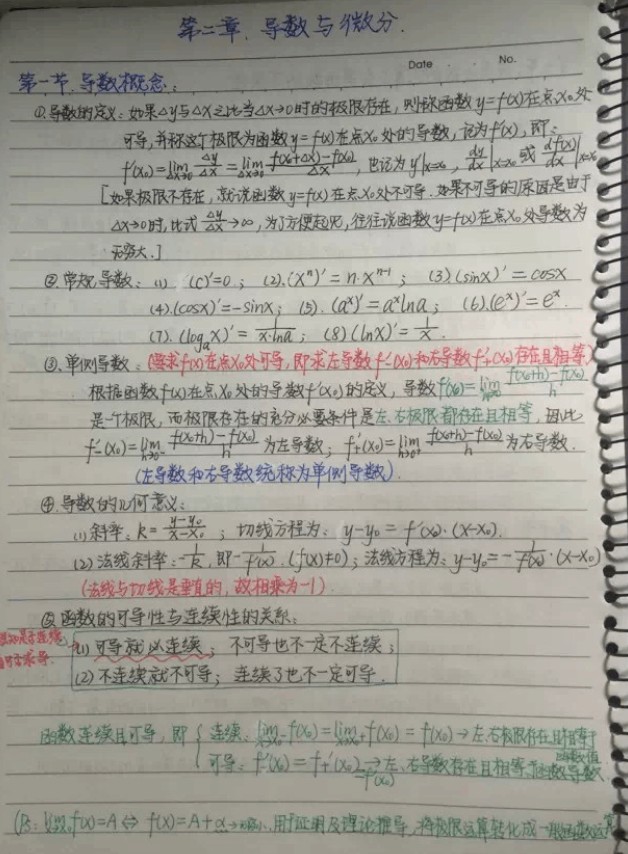 第二章. 导数与微分.
Date . No.
第一节. 导数概念:
①导数的定义:如果△y与△x之比当△x→0时的极限存在,则称函数y=f(x)在点x₀处
可导,并称这个极限为函数y=f(x)在点x₀处的导数,记为f'(x₀),即:
f'(x₀)=lim△x→0 △y/△x = lim△x→0 f(x₀+△x)-f(x₀)/△x,也记为y'|x=x₀,dy/dx|x=x₀或df(x)/dx|x=x₀
[如果极限不存在,就说函数y=f(x)在点x₀处不可导.如果不可导的原因是由于
△x→0时,比式△y/△x→∞,为了方便起见,往往说函数y=f(x)在点x₀处导数为
无穷大.]
②.常规导数:(1) (C)'=0; (2).(xⁿ)'=n·xⁿ⁻¹; (3).(sinx)'=cosx
(4).(cosx)'=-sinx; (5).(aˣ)'=aˣlna; (6).(eˣ)'=eˣ.
(7).(logₐx)'=1/x·lna; (8)(lnx)'=1/x.
③.单侧导数:(要求f(x)在点x₀处可导,即求左导数f'-(x₀)和右导数f'+(x₀)存在且相等.)
根据函数f(x)在点x₀处的导数f'(x₀)的定义,导数f'(x₀)=lim h→0 f(x₀+h)-f(x₀)/h
是一个极限,而极限存在的充分必要条件是左、右极限都存在且相等,因此
f'-(x₀)=lim h→0⁻ f(x₀+h)-f(x₀)/h为左导数;f'+(x₀)=lim h→0⁺ f(x₀+h)-f(x₀)/h为右导数.
(左导数和右导数统称为单侧导数).
④.导数的几何意义:
(1)斜率:k=y-y₀/x-x₀; 切线方程为:y-y₀=f'(x₀)·(x-x₀).
(2)法线斜率:-1/k,即-1/f'(x),(f'(x)≠0);法线方程为:y-y₀=-1/f'(x₀)·(x-x₀)
(法线与切线是垂直的,故相乘为-1)
⑤函数的可导性与连续性的关系:
(1)可导就必连续; 不可导也不一定不连续;
(2)不连续就不可导; 连续了也不一定可导.
函数连续且可导,即{连续:lim x→x₀⁻ f(x₀)=lim x→x₀⁺ f(x₀)=f(x₀)→左、右极限存在且相等于函数值
可导:f'-(x₀)=f'+(x₀)=f'(x₀)→左、右导数存在且相等于函数导数
f(x)=A⇔f(x)=A+α→无穷小,用于证明及理论推导,将极限运算转化成一般函数运算